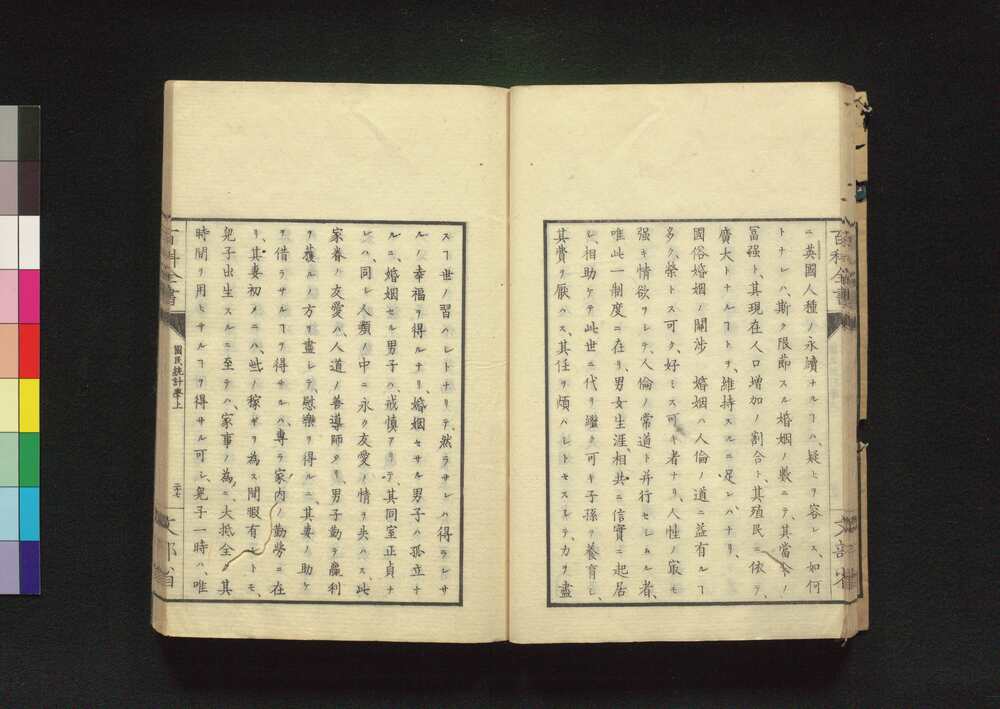 ニ、英國人種ノ永續ナルヿハ、疑ヒヲ容レス、如何
トナレハ、斯ク限節スル婚姻ノ數ニテ、其當今ノ
冨强ト、其現在人口增加ノ割合ト、其殖民ニ依テ、
廣大トナルヿトヲ、維持スルニ足レハナリ、
國俗婚姻ノ關渉 婚姻ハ人倫ノ道ニ益有ルヿ
多ク、榮トス可ク、好ミス可キ者ナリ、人性ノ㝡モ
强キ情欲ヲシテ、人倫ノ常道ト并行セシムル者、
唯此一制度ニ在リ、男女生涯、相共ニ信實ニ起居
シ、相助ケテ此世ニ代リ繼ク可キ子孫ヲ養育シ、
其費ヲ厭ハス、其任ヲ煩ハシトセスシテ、力ヲ盡
スヿ世ノ習ハシトナリテ、然ラサレハ得ラレサ
ル、幸福ヲ得ルナリ、婚姻セサル男子ハ孤立ナ
ルニ、婚姻セル男子ハ、戒慎アリテ、其同室正貞ナ
レハ、同シ人類ノ中ニ永ク友愛ノ情ヲ失ハス、此
家眷ノ友愛ハ、人道ノ善導師タリ、男子勤ラ贏利
ヲ獲ルノ方リ盡シテ、慰樂ヲ得ルニ、其妻ノ助ケ
ヲ借ラサルヿヲ得サルハ、專ラ家内ノ勤勞ニ在
リ、其妻初メニハ、此ノ稼キヲ為ス間暇有レトモ、
兒子出生スルニ至テハ、家事ノ為ニ、大抵全ク其
時間ヲ用ヒサルヿヲ得サル可シ、兒子一時ハ、唯
百科全書
國民統計學上
二十七
文部省